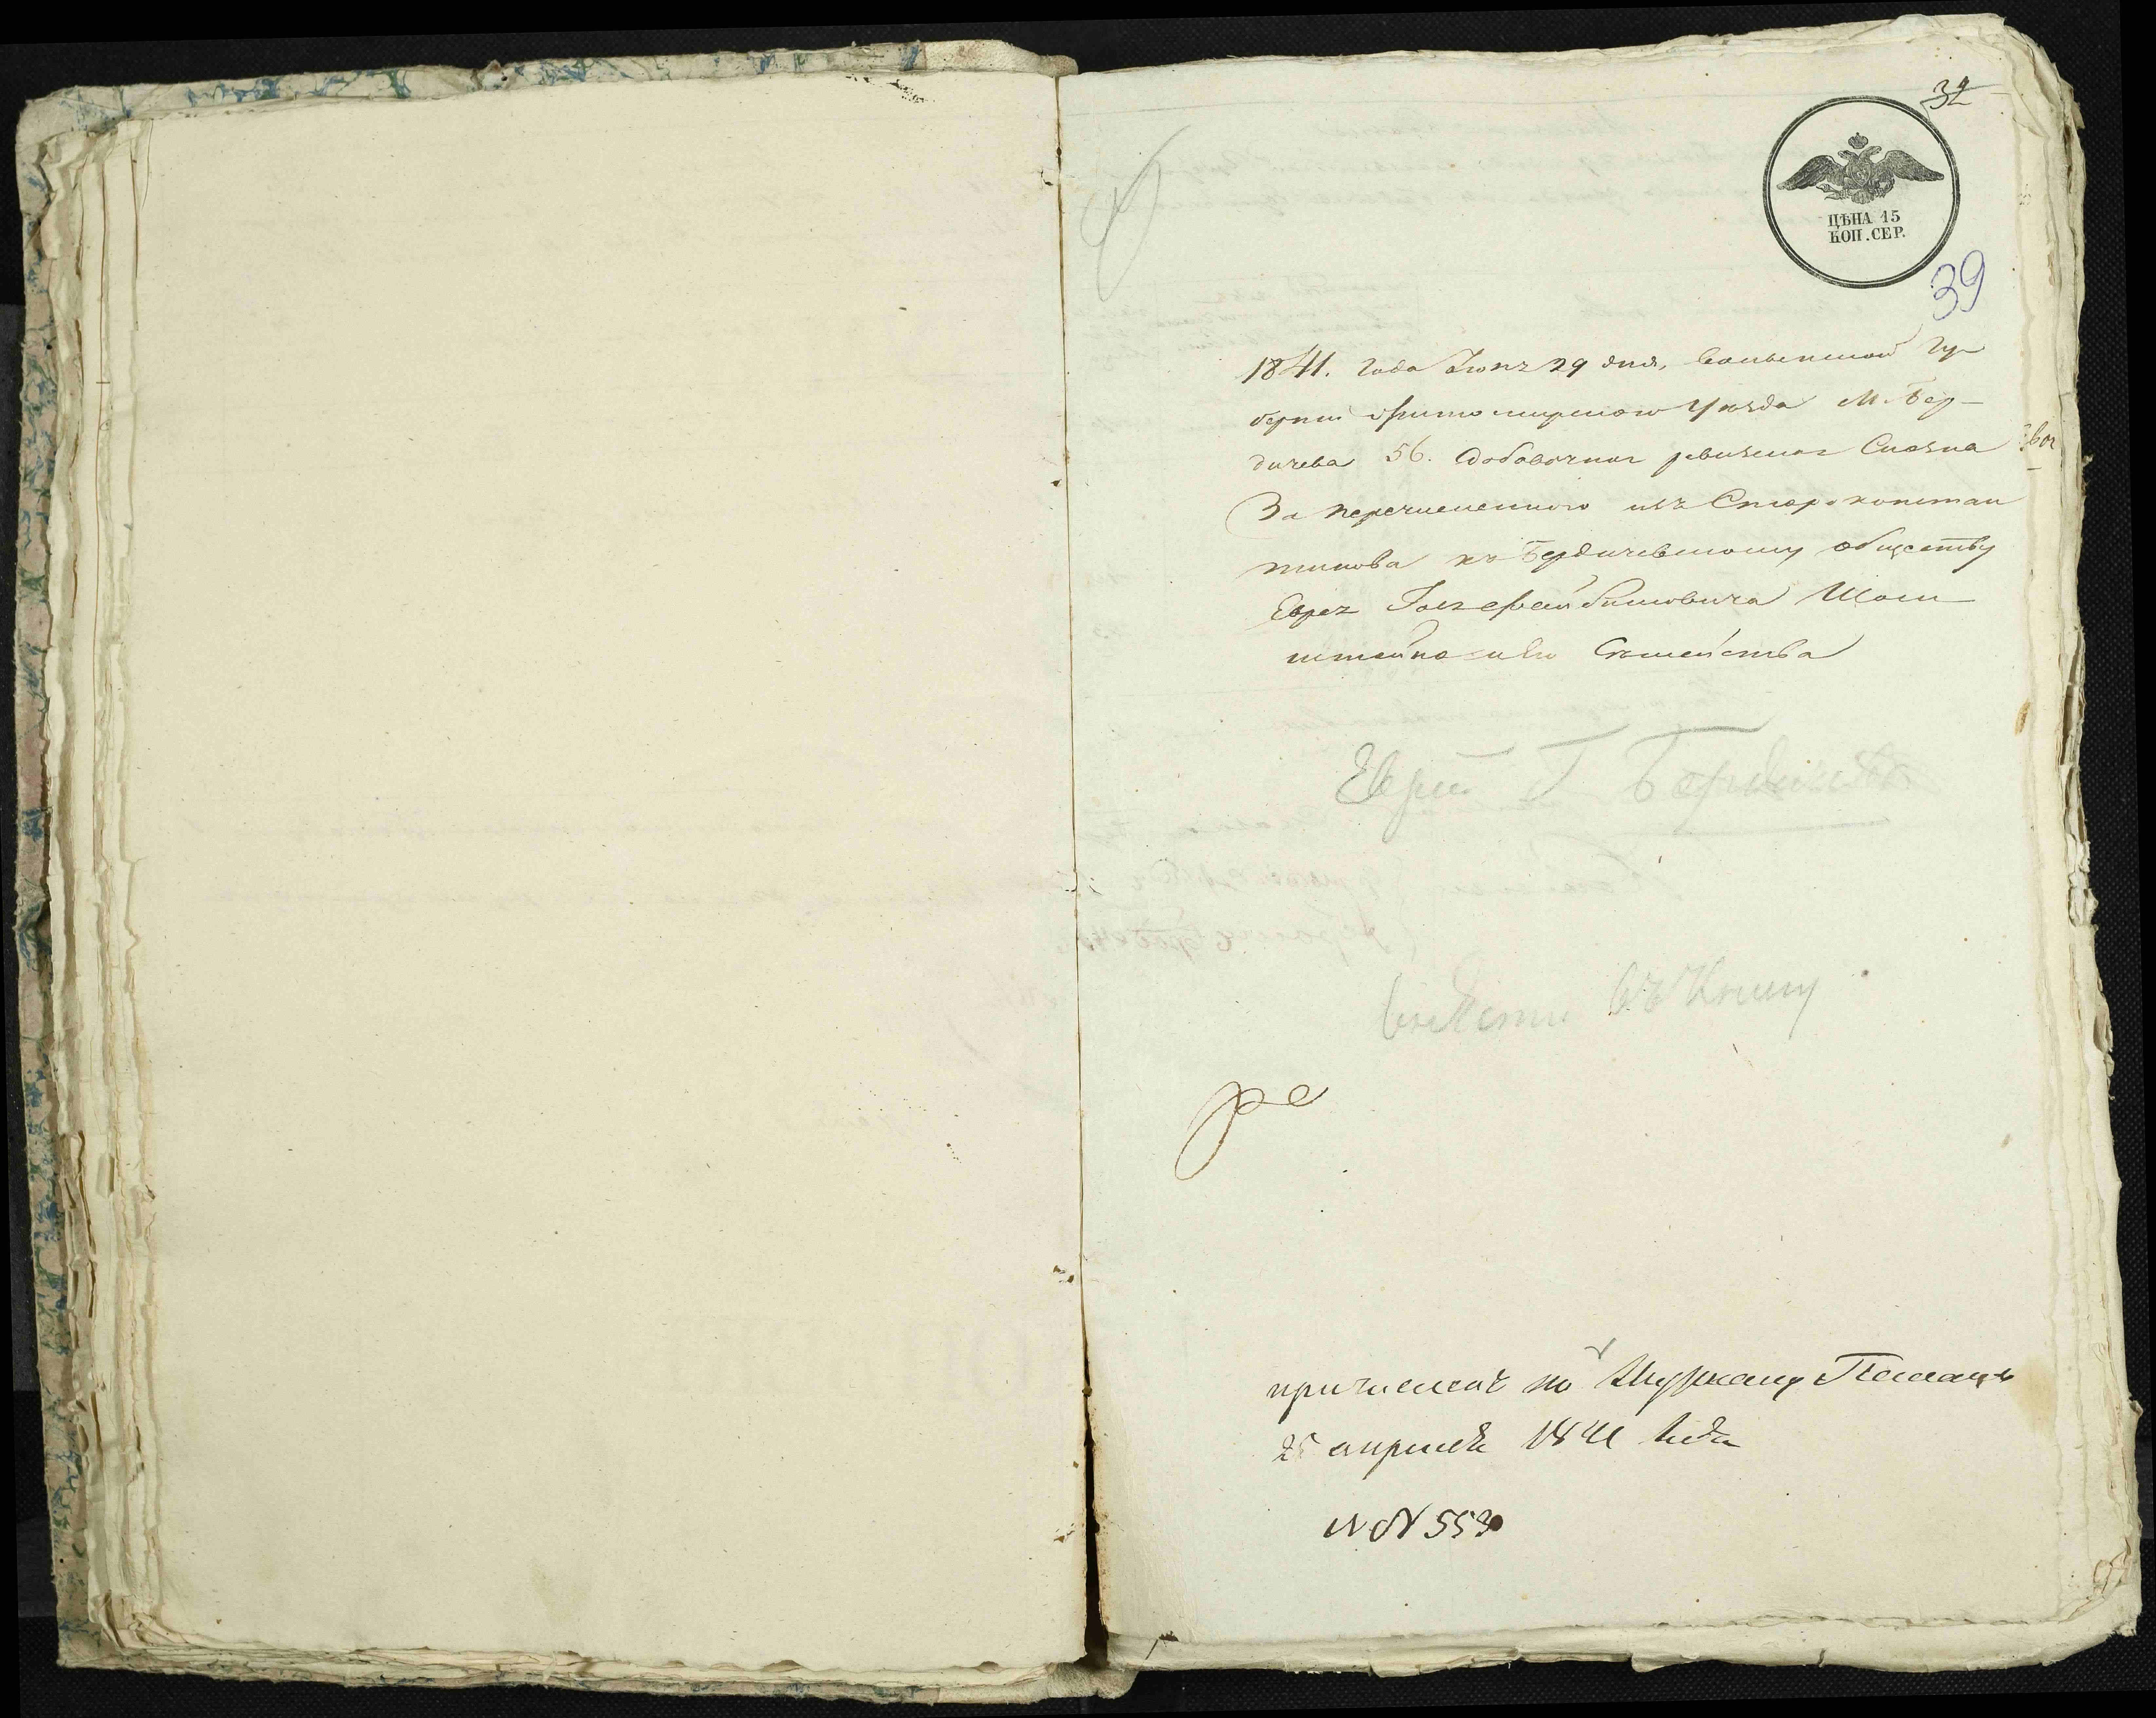 32
ЦѢНА 15
КОП. СЕР.
39
1841. года Іюнѣ 29 дня, Волынской Гу-
берніи Житомирского Уѣзда М. Бер-
дичева 56. Добавочная ревизская Сказка
За перечисленного изъ Староконстан
тинова къ Бердичевскому обществу
Еврея Шмовича
штейна и Его Съмейства
Еврей Г Бердичева
въ Книгу
причислен по Указу Палаты
25 апреля 1841 года
№ 553